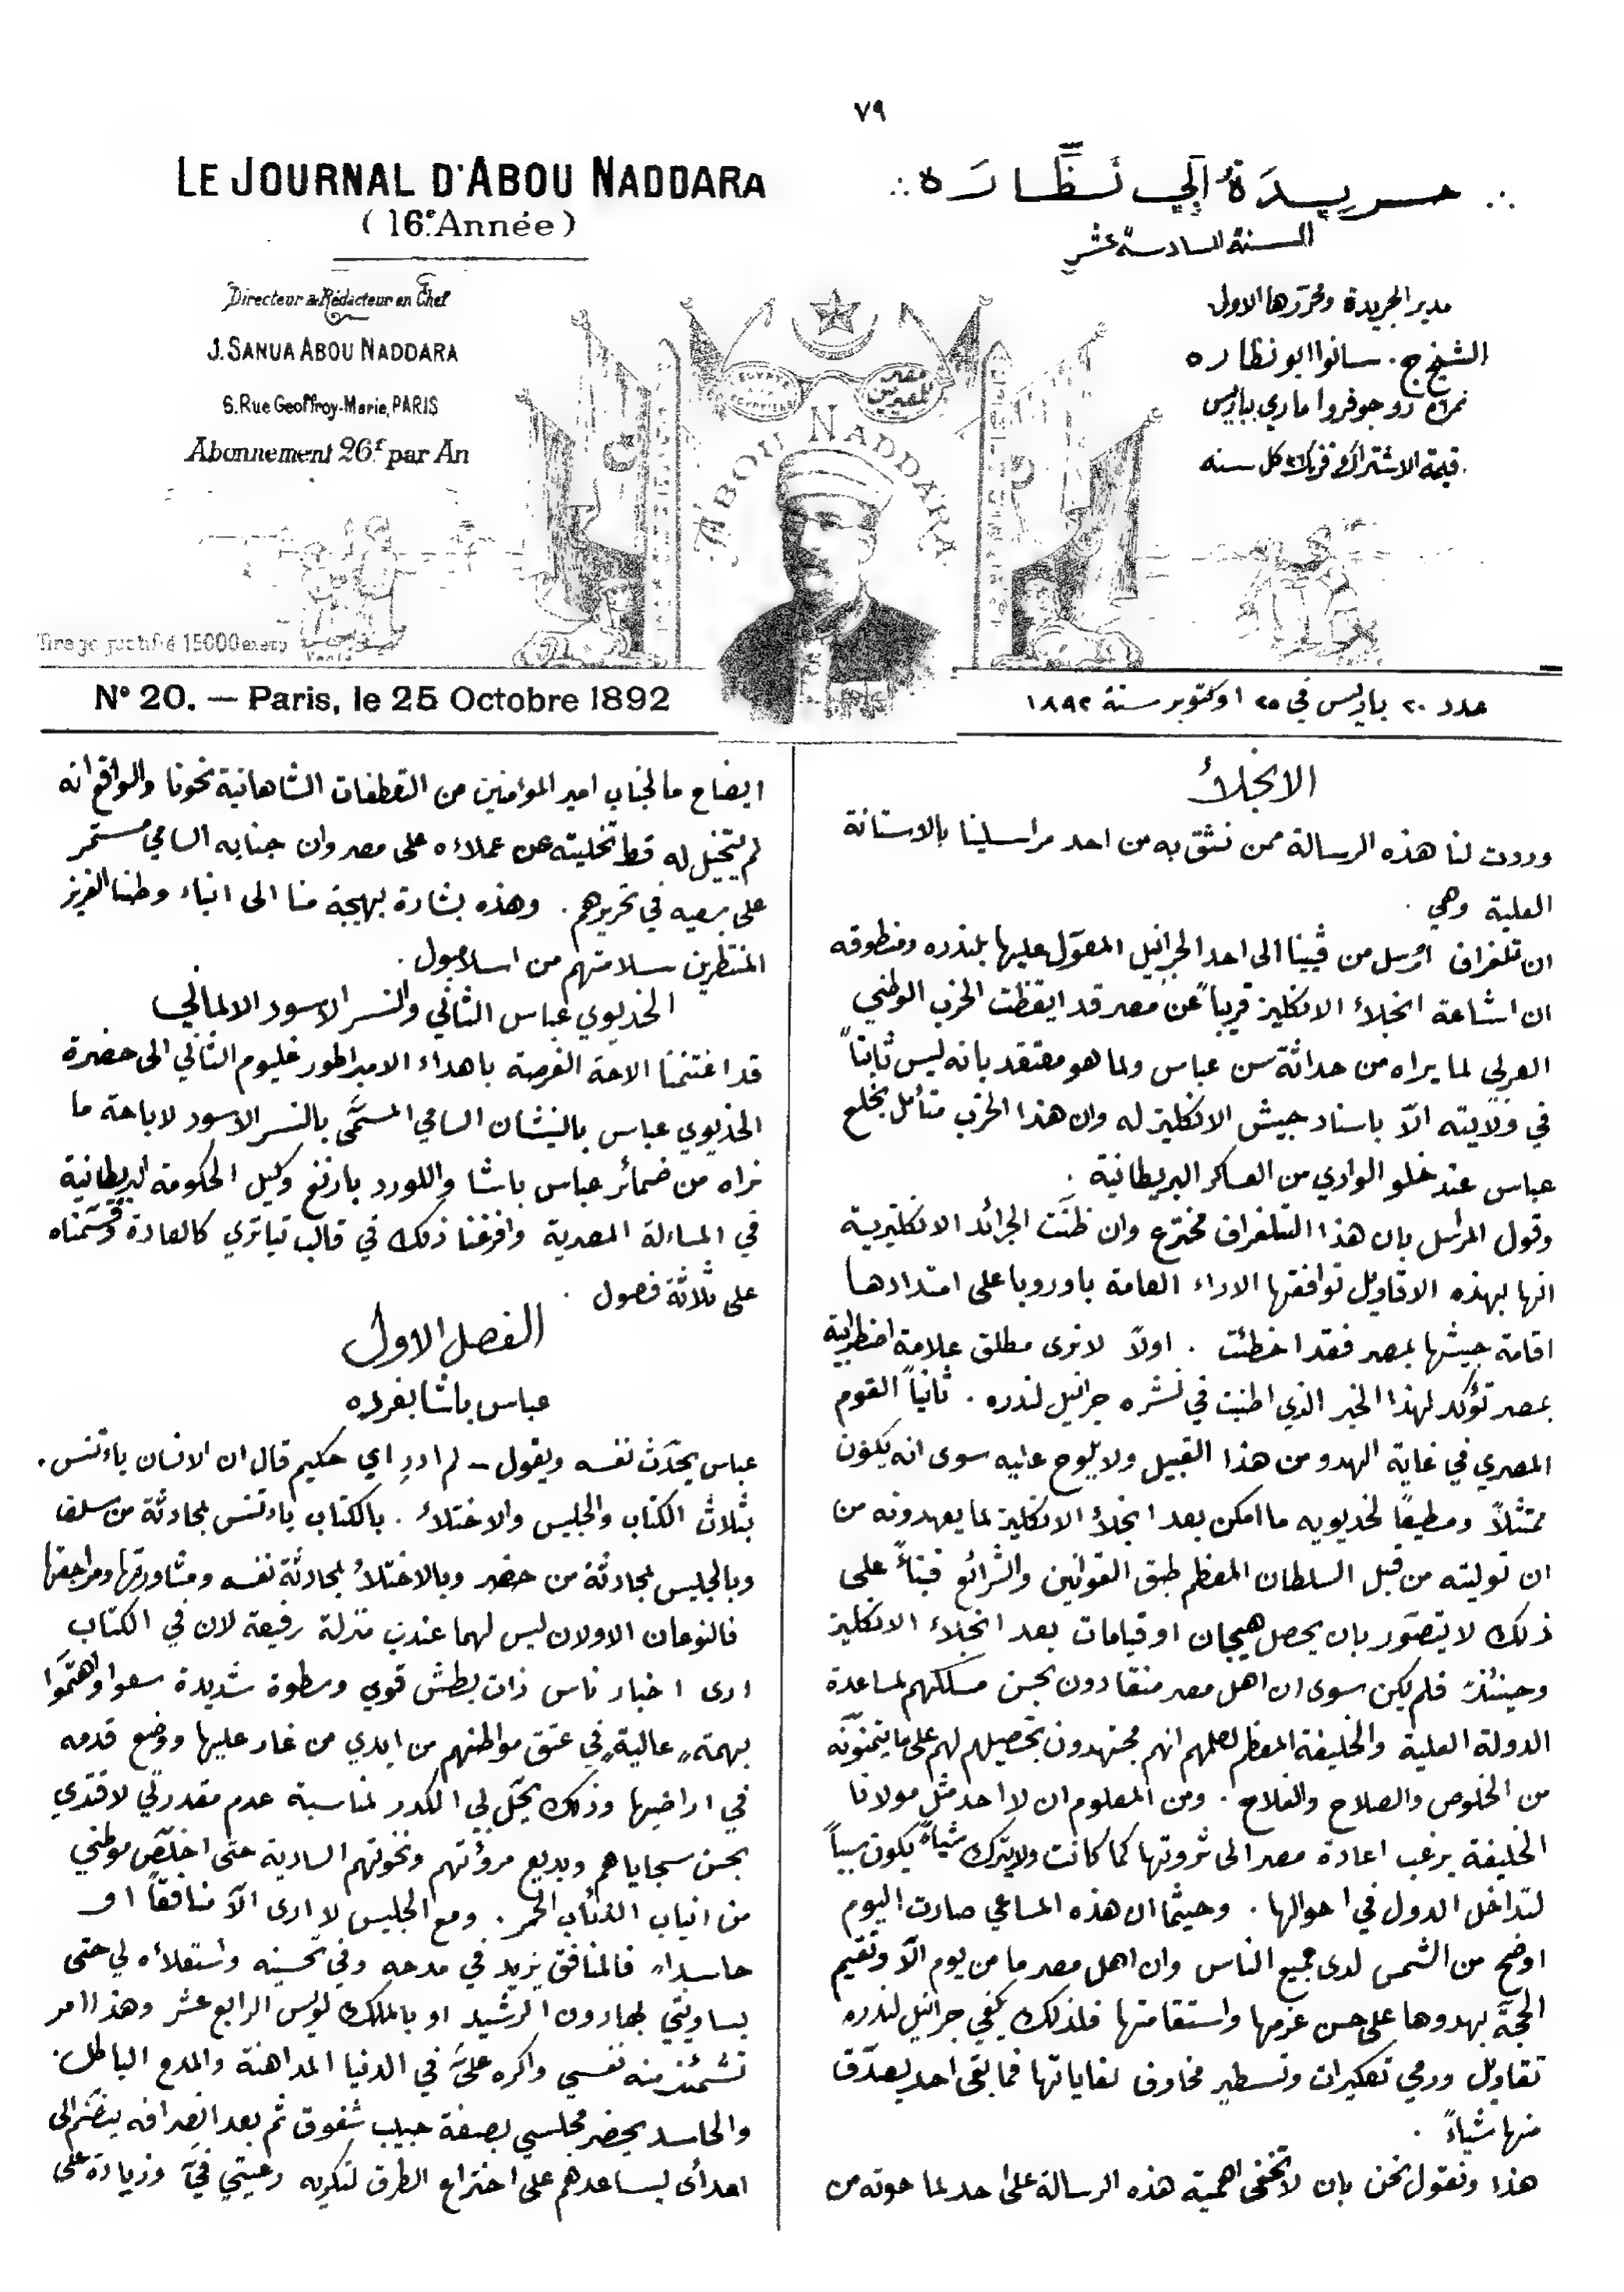 ٧٩
LE JOURNAL D'ABOU NADDARA
(16e. Année)
Directeur & Rédacteur en Chef
J. SANUA ABOU NADDARA
6. Rue Geoffroy-Marie, PARIS
Abonnement 26f par An
∴ جريدَةُ ابي نَظَّارَه ∴
السنة السادسة عشر
مدير الجريدة ومحرّرها الاول
الشيخ ج. سانوا ابو نظاره
نمرة ٦ رو جوفروا ماري بباريس
قيمة الاشتراك ٢٦ فرنك كل سنه
EGYPTE
EGYPTIENS
مصر للمصريين
ABOU NADDARA
Tirage justifié 15000 exemp
N° 20. — Paris, le 25 Octobre 1892
عدد ٢٠ باريس في ٢٥ اوكتوبر سنة ١٨٩٢
الانجلاء
وردت لنا هذه الرسالة ممن نثق به من احد مراسلينا بالاستانة
العلية وهي .
ان تلغراف اُرسل من ڤيينا الى احد الجرانيل المعوّل عليها بلندره ومنطوقه
ان اشاعة انجلاء الانكليز قريباً عن مصر قد ايقظت الحزب الوطني
العربي لما يراه من حداثة سن عباس ولما هو معتقد بانه ليس ثابتاً
في ولايته الاّ باسناد جيش الانكليز له وان هذا الحزب متأمل بخلع
عباس عند خلو الوادي من العساكر البريطانية .
وقول المرسل بان هذا التلغراف مخترع وان ظنَت الجرائد الانكليزية
انها بهذه الاقاويل توافقها الاراء العامة باوروبا على امتدادها
اقامة جيشها بمصر فقد اخطئت . اولاً لا نرى مطلق علامة اضطرابية
بمصر تؤكد لهذا الخبر الذي اطنبت في نشره جرانيل لندره . ثانياً القوم
المصري في غاية الهدو من هذا القبيل ولا يلوح عليه سوى انه يكون
ممتثلاً ومطيعًا لخديويه ما امكن بعد انجلاء الانكليز لما يعهدونه من
ان توليته من قبل السلطان المعظم طبق القوانين والشرائع فبناءً على
ذلك لا يتصوّر بان يحصل هيجان او قيامات بعد انجلاء الانكليز
وحينئذٍ فلم يكن سوى ان اهل مصر منقادون بحسن مسلكهم لمساعدة
الدولة العلية والخليفة المعظم لعلمهم انهم مجتهدون بتحصيلهم لهم على ما يتمنّونه
من الخلوص والصلاح والفلاح . ومن المعلوم ان لا احد مثل مولانا
الخليفة يرغب اعادة مصر الى ثروتها كما كانت ولا يترك شياءً يكون سبباً
لتداخل الدول في احوالها . وحيثما ان هذه المساعي صارت اليوم
اوضح من الشمس لدى جميع الناس وان اهل مصر ما من يوم الاّ وتقيم
الحجّة بهدوها على حسن عزمها واستقامتها فلذلك يكفي جرانيل لندره
تقاويل ورمي تعكيرات وتسطير مخارف لغاياتها فما بقى احد يصدّق
منها شياءً .
هذا ونقول نحن بان لا تخفى اهمية هذه الرسالة على احد لما حوته من
ايضاح ما لجناب امير المؤمنين من التعطفات الشاهانية نحونا والواقع انه
لم يتخيل له قط تخليته عن عملاءه على مصر وان جنابه السامي مستمر
على سعيه في تحريرهم . وهذه بشارة بهيجة منا الى ابناء وطننا العزيز
المنتظرين سلامتهم من اسلامبول .
الخديوي عباس الثاني والنسر الاسود الالماني
قد اغتنمنا الاحة الفرصة باهداء الامبراطور غليوم الثاني الى حضرة
الخديوي عباس بالنيشان السامي المسمَّى بالنسر الاسود لاباحة ما
نراه من ضمائر عباس باشا واللورد بارنغ وكيل الحكومة البريطانية
في المساءلة المصرية وافرغنا ذلك في قالب تياتري كالعادة وقسّمناه
على ثلاثة فصول .
الفصل الاول
عباس باشا بفرده
عباس يحدّث نفسه ويقول ـ لم ادرِ اي حكيم قال ان الانسان ياءتنس .
بثلاث الكتاب والجليس والاختلاء . بالكتاب ياءتنس بمحادثة من سلف
وبالجليس بمحادثة من حضر وبالاختلاء بمحادثة نفسه ومشاورتها ومراجعتها
فالنوعان الاولان ليس لهما عندي منزلة رفيعة لان في الكتاب
ارى اخبار ناس ذات بطش قوي وسطوة شديدة سعوا واهتمّوا
بهمةٍ عاليةٍ في عتق مواطنهم من ايدي من غار عليها ووضع قدمه
في اراضيها وذلك يجلب لي الكدر لمناسبة عدم مقدرتي لاقتدي
بحسن سجاياهم وبديع مروئتهم ونخوتهم السادية حتى اخلّص موطني
من انياب الذئاب الحمر . ومع الجليس لا ارى الاّ منافقاً او
حاسداً فالمنافق يزيد في مدحه وفي تحسينه واستعلاءه لي حتى
يساويني بهارون الرشيد او بالملك لويس الرابع عشر وهذا امر
تشمئز منه نفسي واكره عليَّ في الدنيا المداهنة والمدح الباطل .
والحاسد يحضر مجلسي بصفة حبيب شفوق ثم بعد انصرافه ينضم الى
اعدائى ليساعدهم على اختراع الطرق لتكريه رعيتي فيَّ وزيادة على